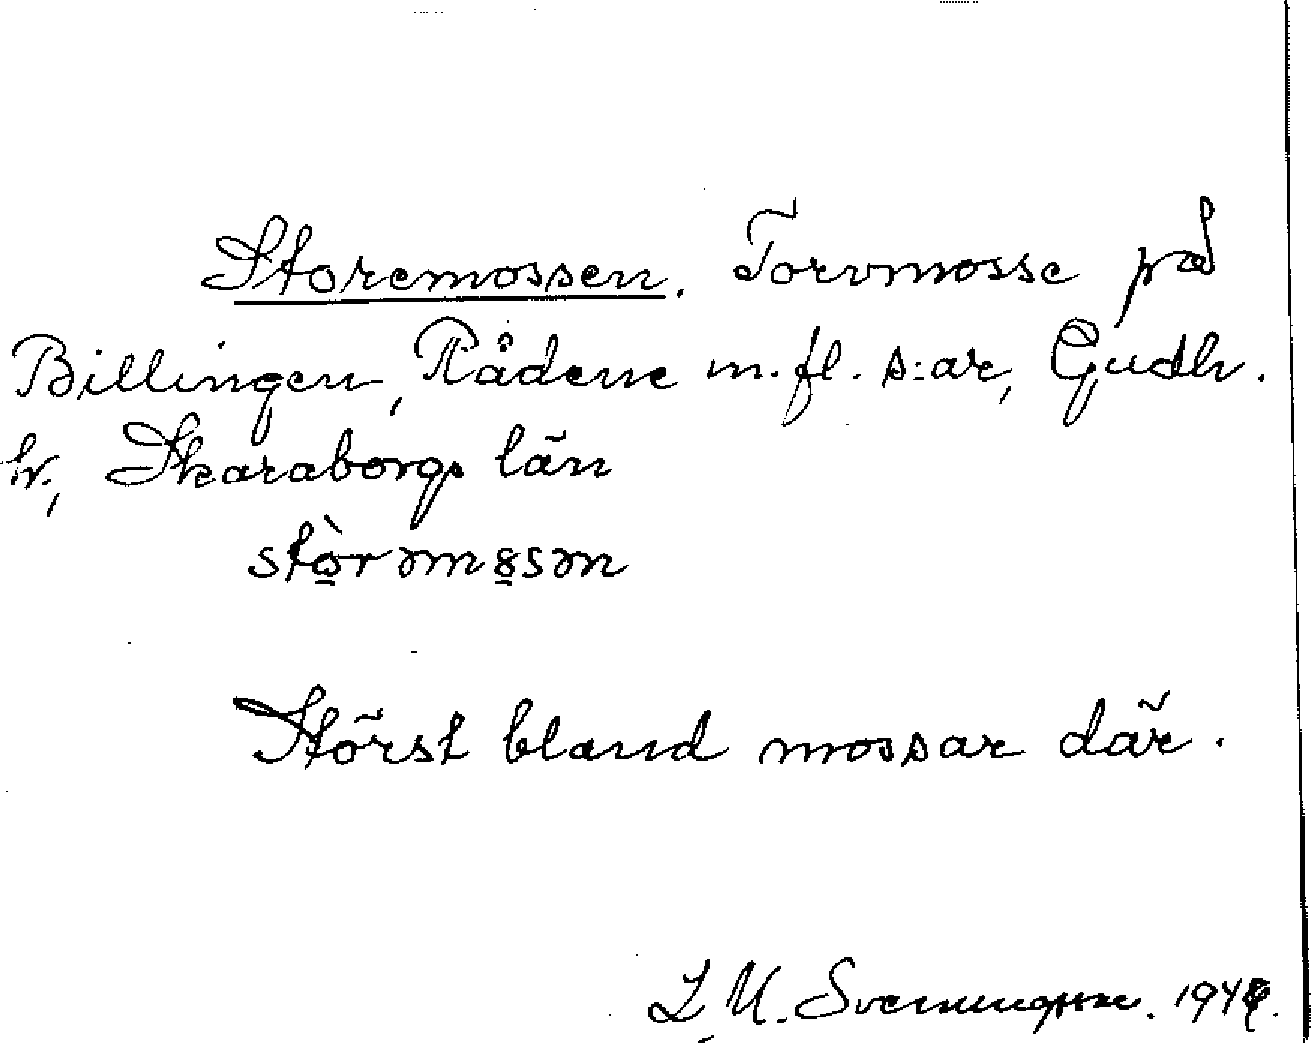 Storemossen. Torvmosse på
Billingen, Rådene m.fl. s:ar, Gudh.
hr, Skaraborgs län
stòrəmɷsən
Störst bland mossar där.
L. M. Svenungsson.